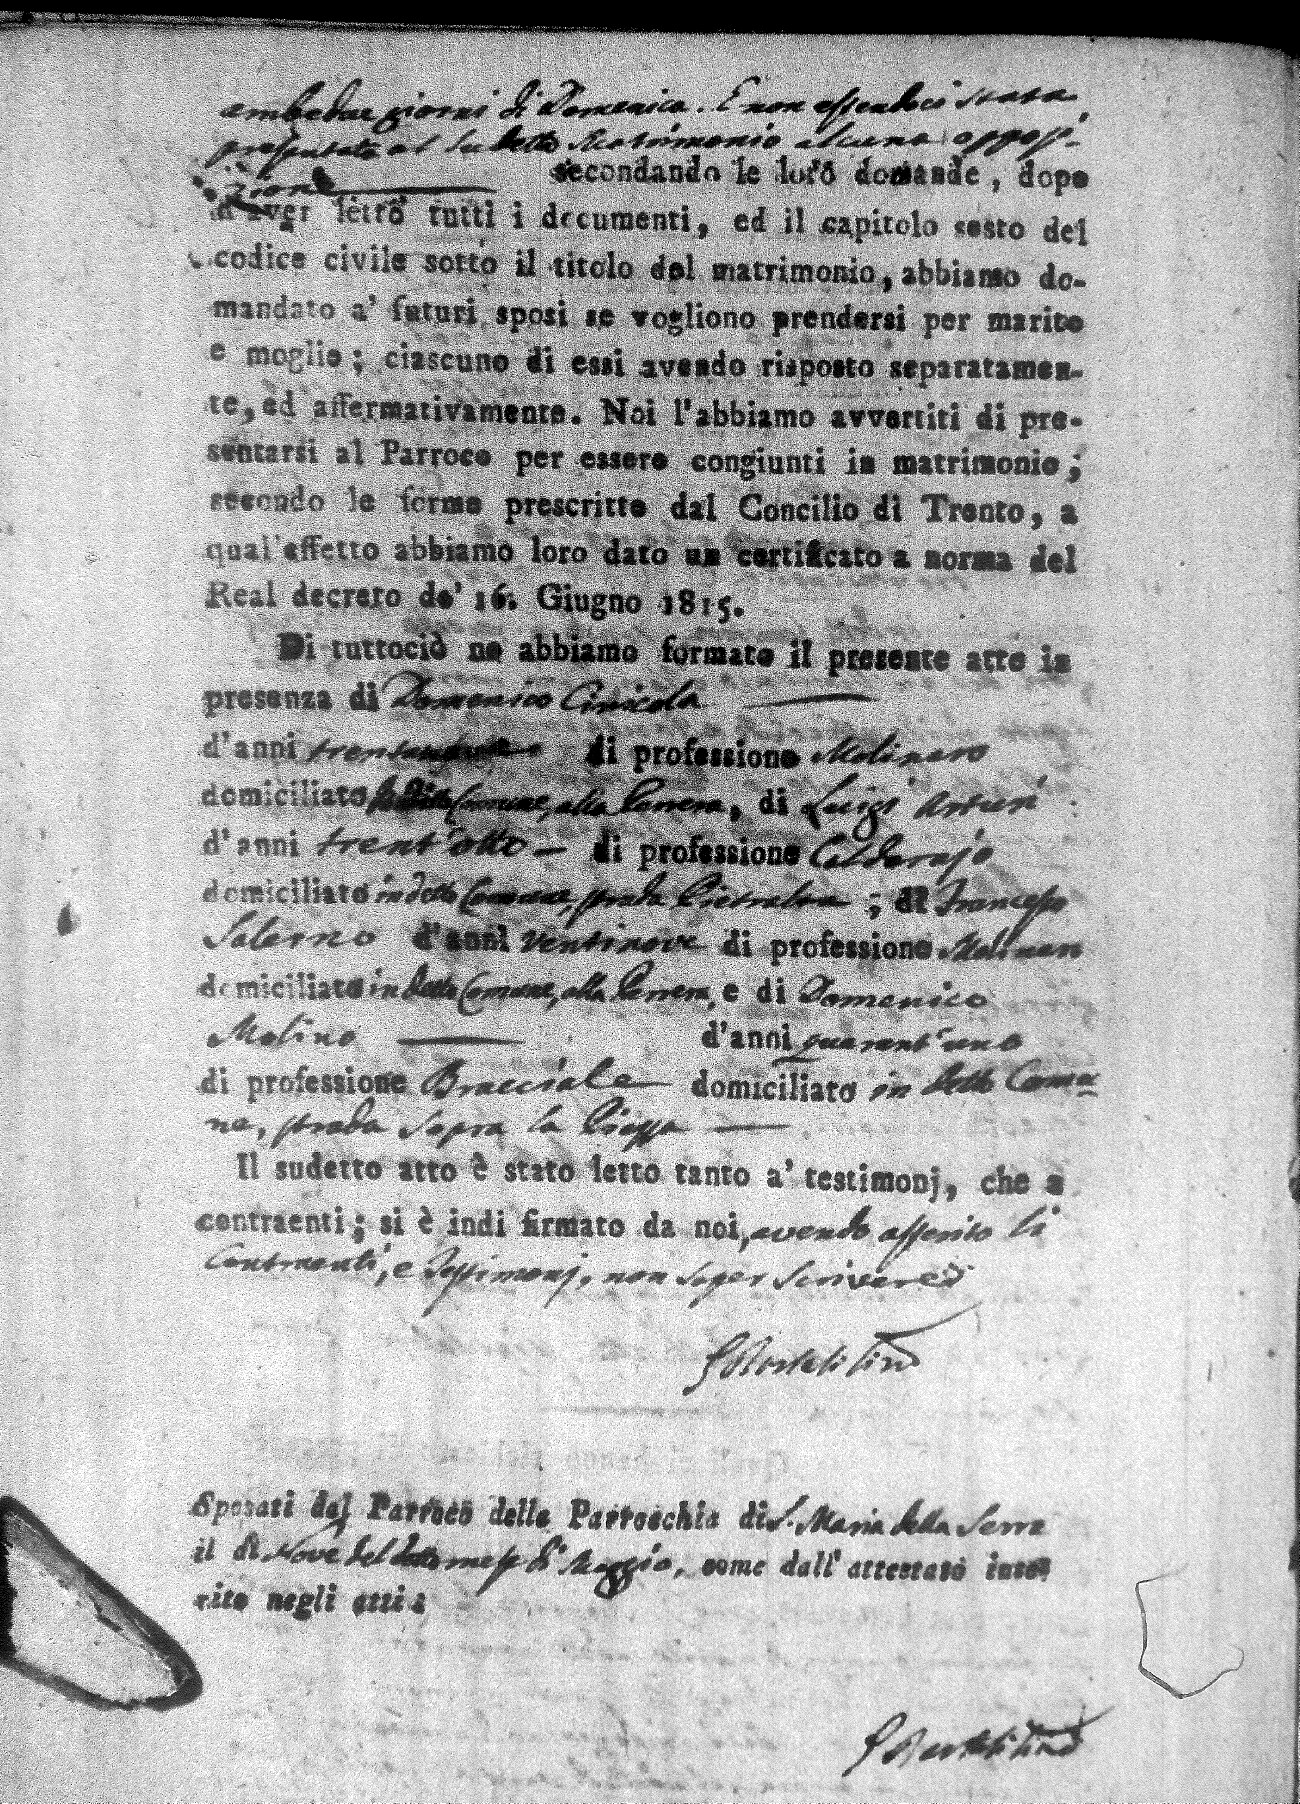 ambedue giorni di Domenica. E non essendoci stata
presentata al sudetto Matrimonio alcuna opposi-
zione secondando le loro domande, dopo
d'aver letto tutti i documenti, ed il capitolo sesto del
codice civile sotto il titolo del matrimonio, abbiamo do-
mandato a' futuri sposi se vogliono prendersi per marito
e moglie; ciascuno di essi avendo risposto separatamen-
te, ed affermativamente. Noi l'abbiamo avvertiti di pre-
sentarsi al Parroco per essere congiunti in matrimonio;
secondo le forme prescritte dal Concilio di Trento, a
qual'effetto abbiamo loro dato un certificato a norma del
Real decreto de' 16. Giugno 1815.
Di tuttociò ne abbiamo formato il presente atto in
presenza di Domenico Cinicola
d'anni di professione Molinaro
domiciliato in detto Comune, alla Perrera, di Luigi Arturi
d'anni trent'otto di professione Caldarajo
domiciliato in detto Comune, strada ; di Francesco
Salerno d'anni ventinove di professione Molinaro
domiciliato in detto Comune, alla Perrera, e di Domenico
Molino d'anni quarant'uno
di professione Bracciale domiciliato in detto Comu-
ne, strada Sopra la Piazza
Il sudetto atto è stato letto tanto a' testimonj, che a
contraenti; si è indi firmato da noi, avendo asserito li
Contraenti, e Testimonj, non saper scrivere
Sposati dal Parroco della Parrocchia di S. Maria della Serra
il dì Nove del detto mese di Maggio, come dall'attestato inse-
rito negli atti: